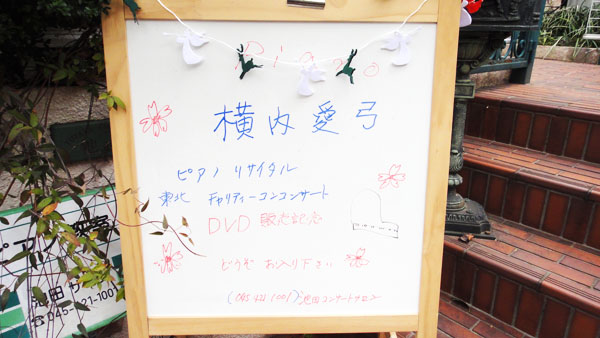 Piano
横内愛弓
ピアノ リサイタル
東北 チャリティーコンコンサート
DVD 販売記念
どうぞ お入り下さい
(045 421 1001) 池田コンサートサロン
ピアノ
池田 サ
☎045-421-1001